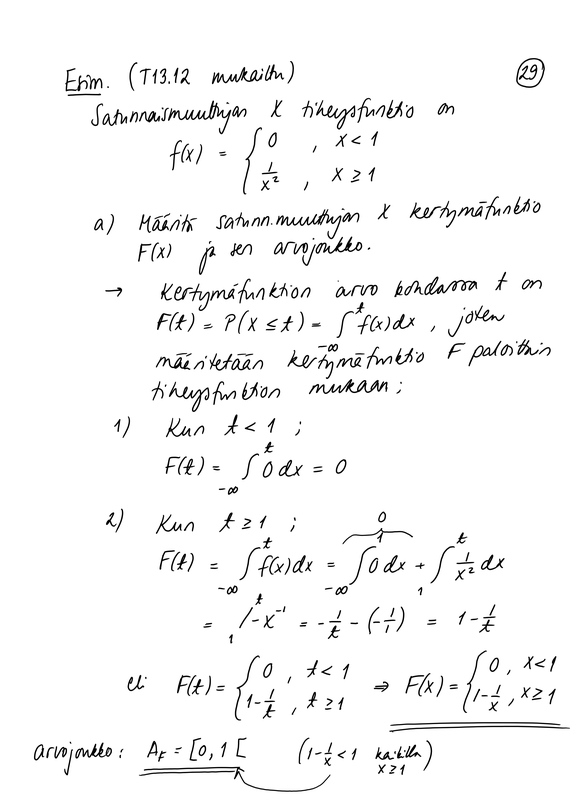 Esim. (T13.12 mukailtu)
29
Satunnaismuuttujan X tiheysfunktio on
f(x) = { 0 , x < 1
1/x² , x ≥ 1
a) Määritä satunn.muuttujan X kertymäfunktio
F(x) ja sen arvojoukko.
→ Kertymäfunktion arvo kohdassa t on
F(t) = P(X ≤ t) = ∫_{-∞}^{t} f(x)dx , joten
määritetään kertymäfunktio F paloittain
tiheysfunktion mukaan ;
1) Kun t < 1 ;
F(t) = ∫_{-∞}^{t} 0 dx = 0
2) Kun t ≥ 1 ;
0
F(t) = ∫_{-∞}^{t} f(x)dx = ∫_{-∞}^{1} 0 dx + ∫_{1}^{t} 1/x² dx
= /_{1}^{t} -x⁻¹ = -1/t - (-1/1) = 1 - 1/t
eli F(t) = { 0 , t < 1 ⇒ F(x) = { 0 , x < 1
1 - 1/t , t ≥ 1 1 - 1/x , x ≥ 1
arvojoukko : A_F = [0, 1[ (1 - 1/x < 1 kaikilla
x ≥ 1)